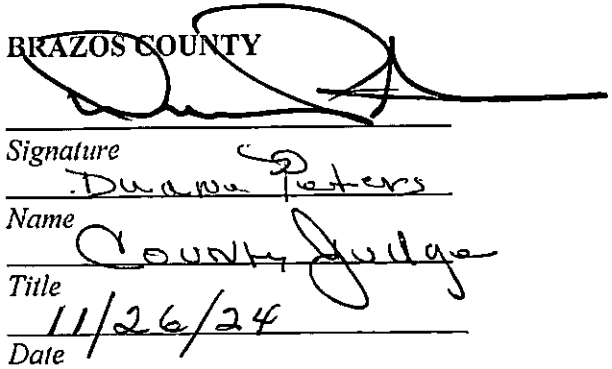 BRAZOS COUNTY
Signature
Duane Peters
Name
County Judge
Title
11/26/24
Date